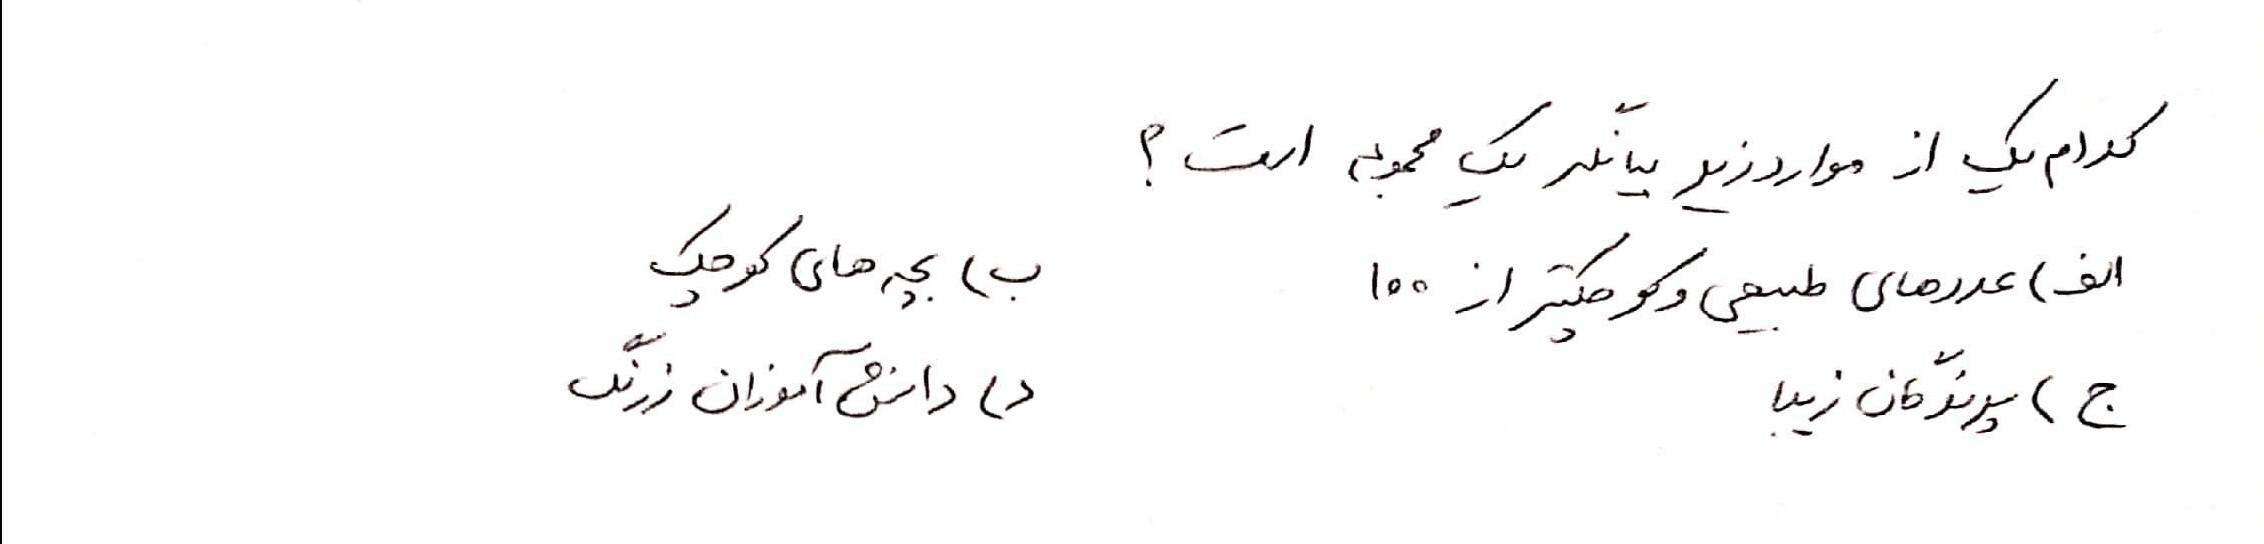 کدام یک از موارد زیر بیانگر یک مجموعه است؟
الف) عددهای طبیعی و کوچکتر از ۱۰۰ ب) بچه های کوچک
ج) پرندگان زیبا د) دانش آموزان زرنگ